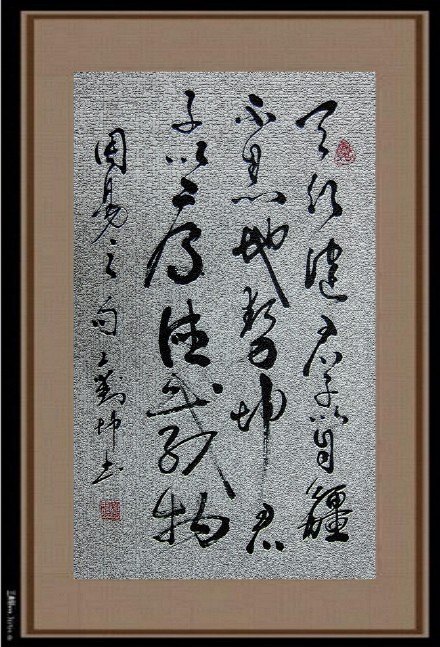 天行健君子以自疆
不息地勢坤君
子以厚德载物
周易之句劉坤书